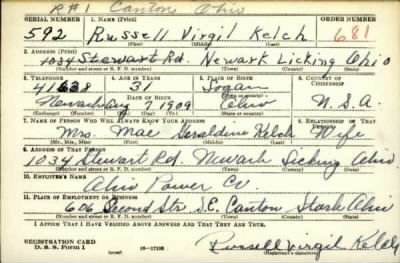 R#1 Canton Ohio
SERIAL NUMBER 1. NAME (Print) ORDER NUMBER
592 Russell Virgil Kelch 681
(First) (Middle) (Last)
2. ADDRESS (Print)
1034 Stewart Rd. Newark Licking Ohio
(Number and street or R. F. D. number) (Town) (County) (State)
3. TELEPHONE 4. AGE IN YEARS 5. PLACE OF BIRTH 6. COUNTRY OF CITIZENSHIP
41638 31 Logan
Newark DATE OF BIRTH Ohio U.S.A.
Aug 7 1909
7. NAME OF PERSON WHO WILL ALWAYS KNOW YOUR ADDRESS 8. RELATIONSHIP OF THAT PERSON
Mrs. Mae Geraldine Kelch Wife
(Mr., Mrs., Miss) (First) (Middle) (Last)
9. ADDRESS OF THAT PERSON
1034 Stewart Rd. Newark Licking Ohio
(Number and street or R. F. D. number) (Town) (County) (State)
10. EMPLOYER'S NAME
Ohio Power Co.
11. PLACE OF EMPLOYMENT OR BUSINESS
606 Second Str. S.E. Canton Stark Ohio
(Number and street or R. F. D. number) (Town) (County) (State)
I AFFIRM THAT I HAVE VERIFIED ABOVE ANSWERS AND THAT THEY ARE TRUE.
REGISTRATION CARD
D. S. S. Form 1
Russell Virgil Kelch
(Registrant's signature)